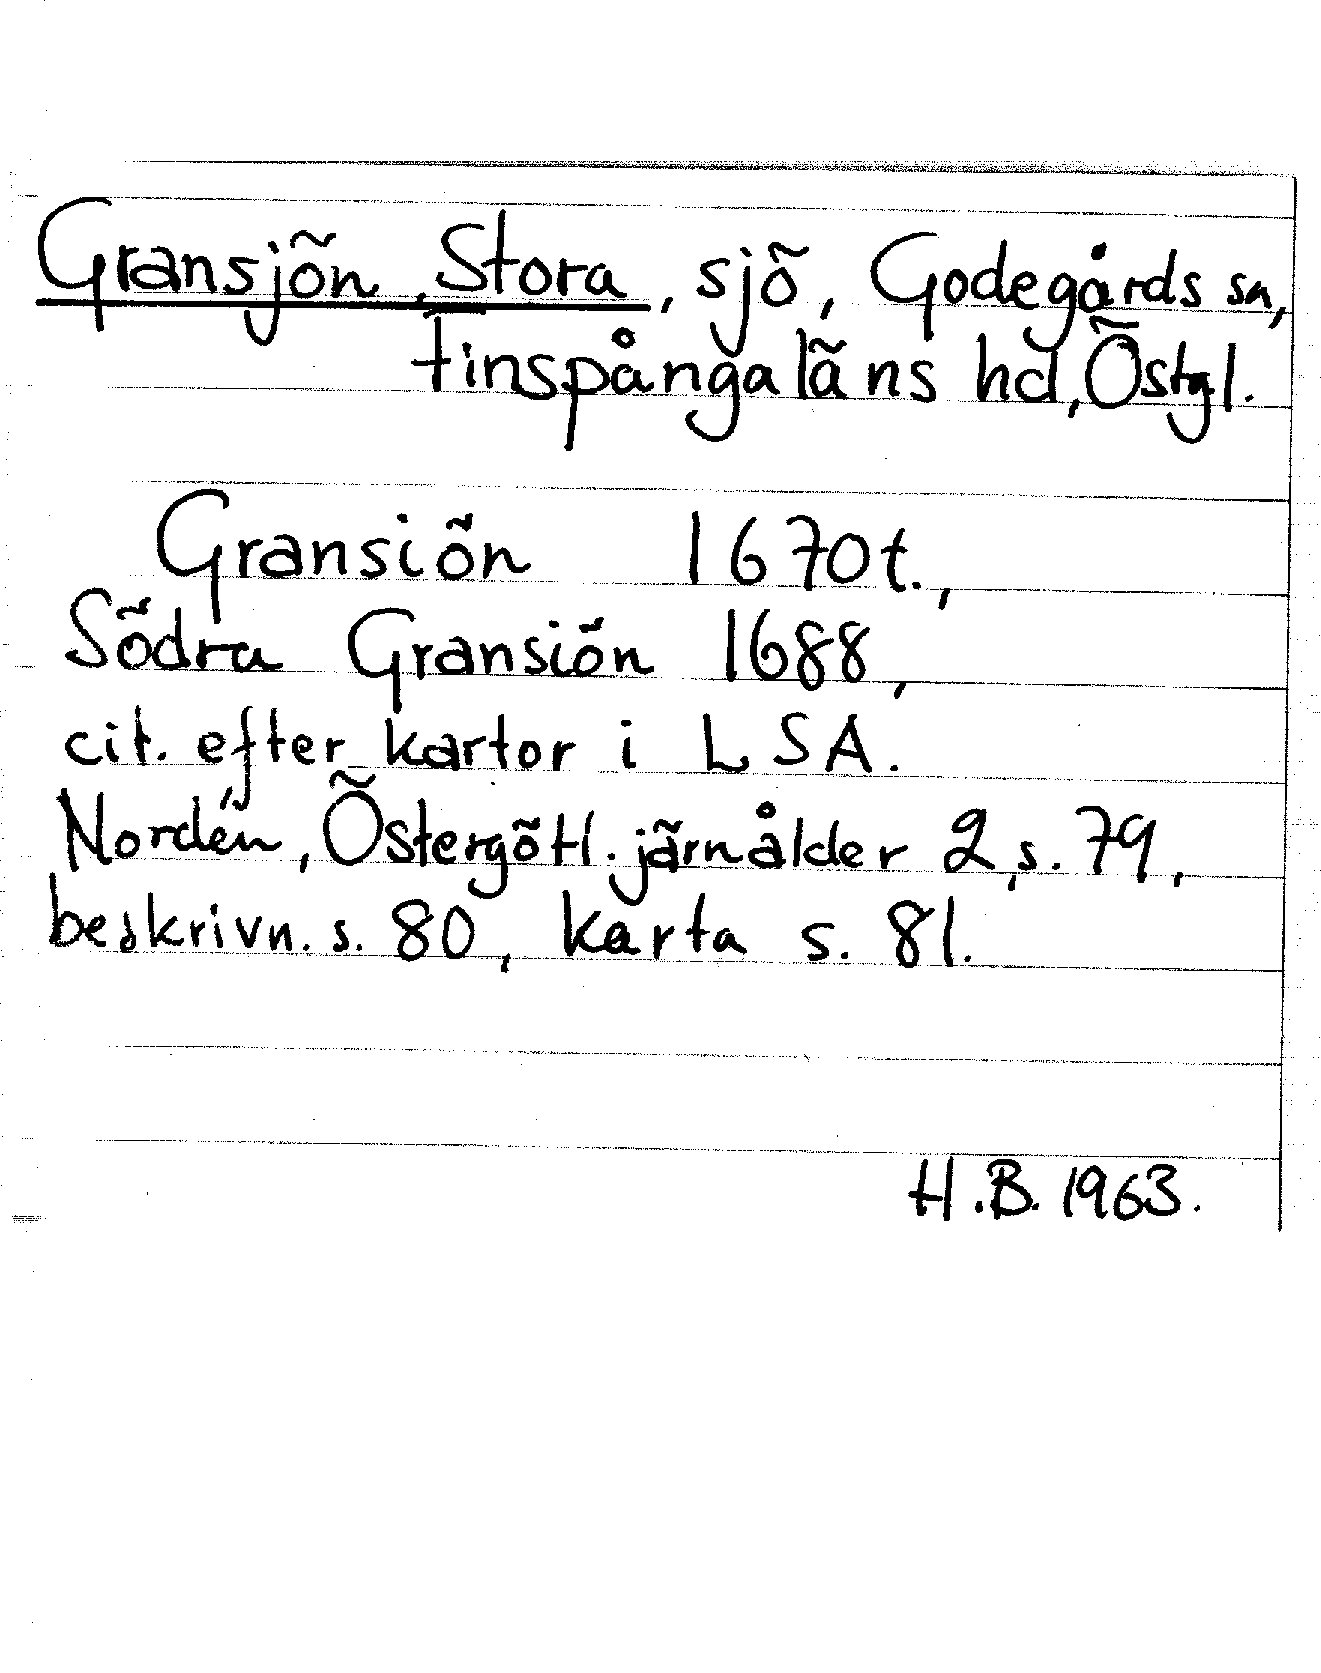 Gransjön, Stora, sjö, Godegårds sn,
Finspångaläns hd, Östgl.
Gransiön 1670t.,
Södra Gransiön 1688,
cit. efter kartor i LSA.
Nordén, Östergötl. järnålder 2, s. 79,
beskrivn. s. 80, karta s. 81.
H.B. 1963.